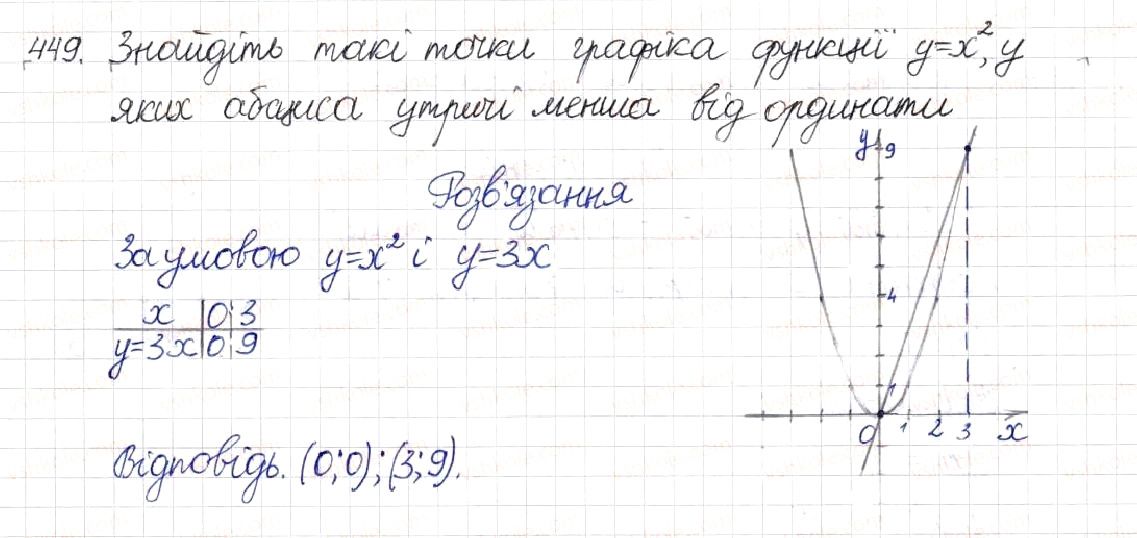 449. Знайдіть такі точки графіка функції y=x², у
яких абциса утричі менша від ординати
Розв'язання
За умовою y=x² і y=3x
x 0 3
y=3x 0 9
Відповідь. (0;0);(3;9).
y 9
4
1
0 1 2 3 x